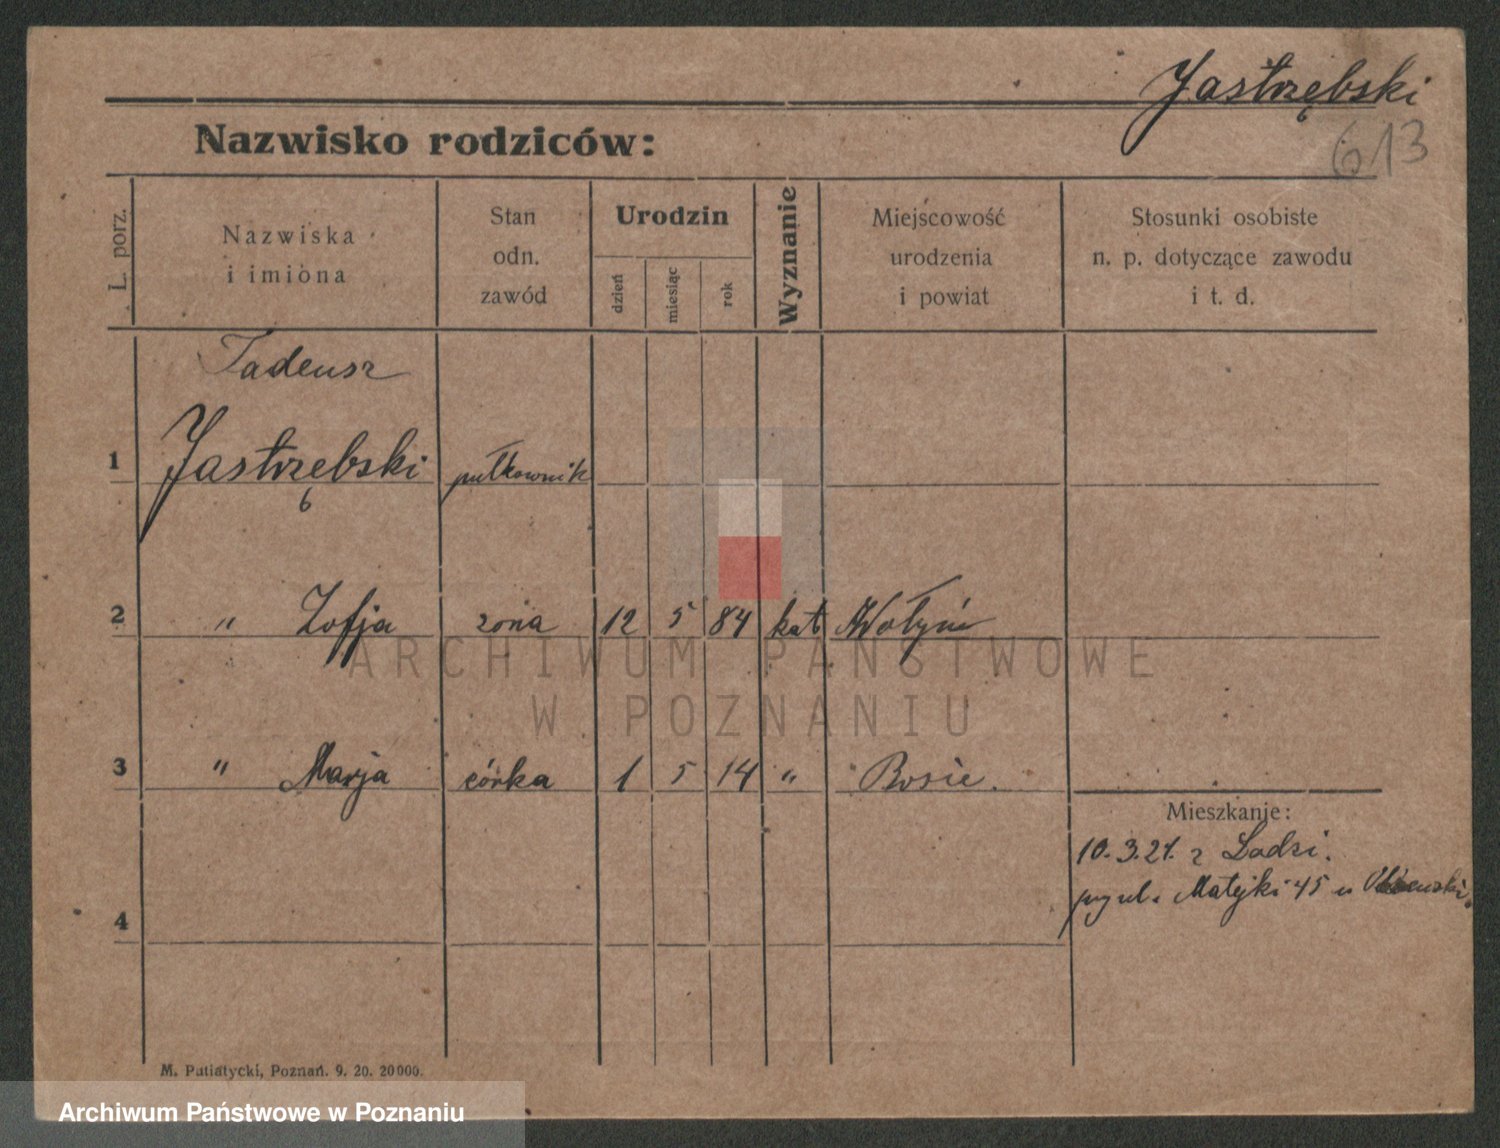 Jastrzębski
613
Nazwisko rodziców:
L. porz.
Nazwiska
i imiona
Stan
odn.
zawód
Urodzin
dzień
miesiąc
rok
Wyznanie
Miejscowość
urodzenia
i powiat
Stosunki osobiste
n. p. dotyczące zawodu
i t. d.
Tadeusz
1 Jastrzębski pułkownik
2 " Zofja żona 12 5 84 kat Wołyń
3 " Marja córka 1 5 14 "
Mieszkanie:
10. 3. 21. z Łodzi.
ul. Matejki 45 u
4
ARCHIWUM PAŃSTWOWE
W POZNANIU
M. Putiatycki, Poznań. 9. 20. 20 000.
Archiwum Państwowe w Poznaniu